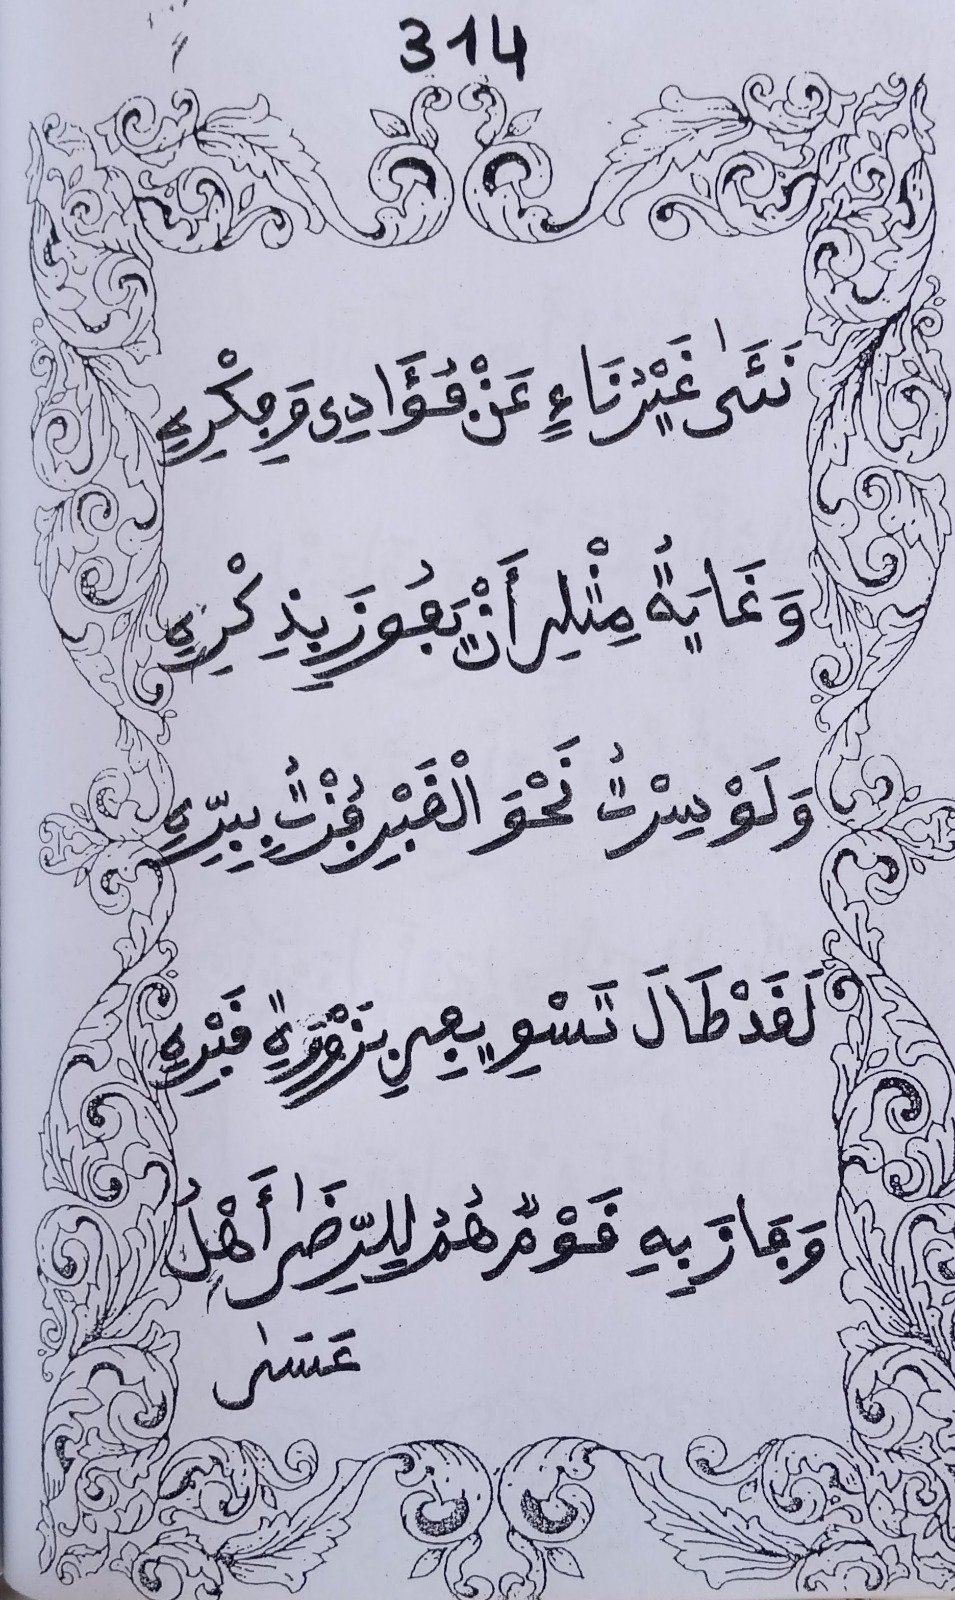 314
نَئَىٰ غَيْرُ نَاءٍ عَنْ فُؤَادِي وَفِكْرِهِ
وَغَايَةُ مِثْلِي أَنْ يَفُوزَ بِذِكْرِهِ
وَلَوْ سِرْتُ نَحْوَ الْقَبْرِ فُزْتُ بِبِرِّهِ
لَقَدْ طَالَ تَسْوِيفِي بِزَوْرَةِ قَبْرِهِ
وَفَازَ بِهِ قَوْمٌ هُمُ لِلرِّضَىٰ أَهْلُ
عَسَىٰ